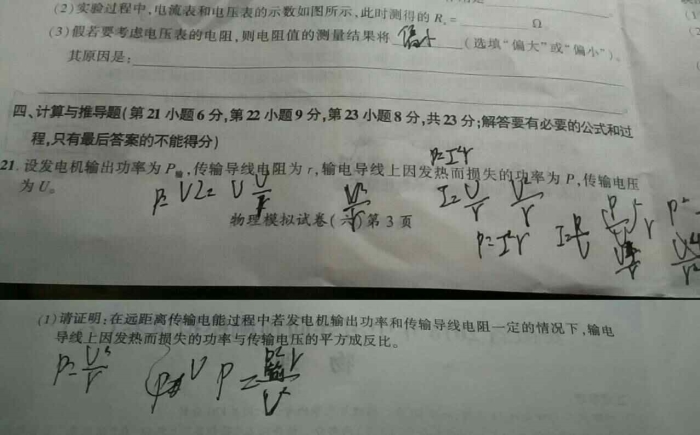 (2)实验过程中,电流表和电压表的示数如图所示,此时测得的 Rx= Ω
(3)假若要考虑电压表的电阻,则电阻值的测量结果将 偏小 (选填“偏大”或“偏小”)。
其原因是:
四、计算与推导题(第 21 小题 6 分,第 22 小题 9 分,第 23 小题 8 分,共 23 分;解答要有必要的公式和过
程,只有最后答案的不能得分)
P=I²r
21. 设发电机输出功率为 P输,传输导线电阻为 r,输电导线上因发热而损失的功率为 P,传输电压
为 U。
物理模拟试卷(六)第 3 页
P=I²r
(1)请证明:在远距离传输电能过程中若发电机输出功率和传输导线电阻一定的情况下,输电
导线上因发热而损失的功率与传输电压的平方成反比。